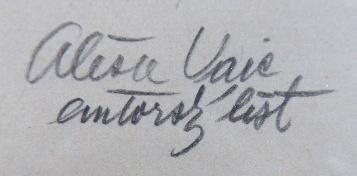 Alena Vaic
autorský list